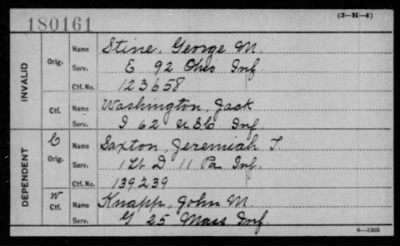 180161
(3-H-4)
INVALID
Orig. Name Stine, George M.
Serv. E 92 Ohio Inf
Ctf. No. 123658
Ctf. Name Washington, Jack
Serv. I 62 U.S.C. Inf.
DEPENDENT
C
Orig. Name Saxton, Jeremiah T.
Serv. 1 Lt D 11 Pa Inf.
Ctf. No. 139239
W
Ctf. Name Knapp, John M.
Serv. G 25 Mass Inf.